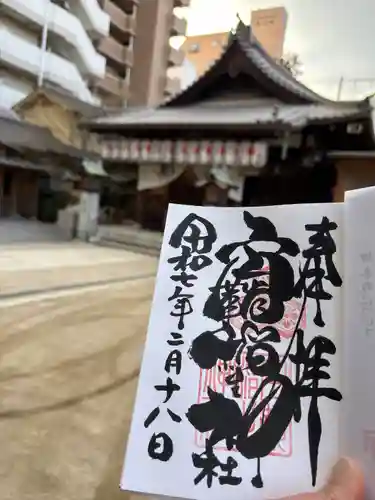 奉拝
空鞘稲生神社
令和七年二月十八日